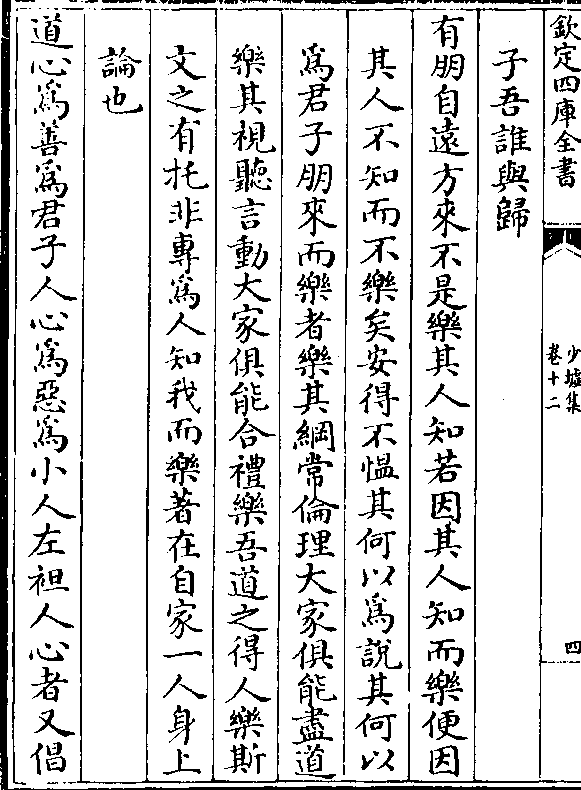 欽定四庫全書
少墟集
卷十二
四
子吾誰與歸
有朋自遠方來不是樂其人知若因其人知而樂便因
其人不知而不樂矣安得不慍其何以為說其何以
爲君子朋來而樂者樂其綱常倫理大家俱能盡道
樂其視聽言動大家俱能合禮樂吾道之得人樂斯
文之有托非專爲人知我而樂著在自家一人身上
論也
道心爲善爲君子人心爲惡爲小人左袒人心者又倡